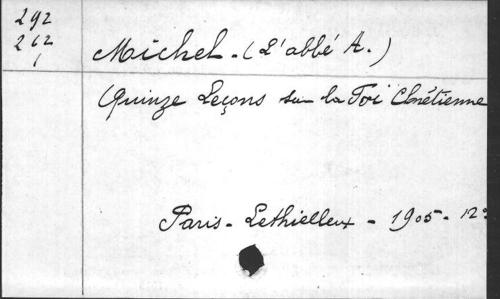 292
262
1
Michel - (L'abbé A.)
Quinze Leçons sur la Foi Chrétienne
Paris - Lethielleux - 1905 - 12°